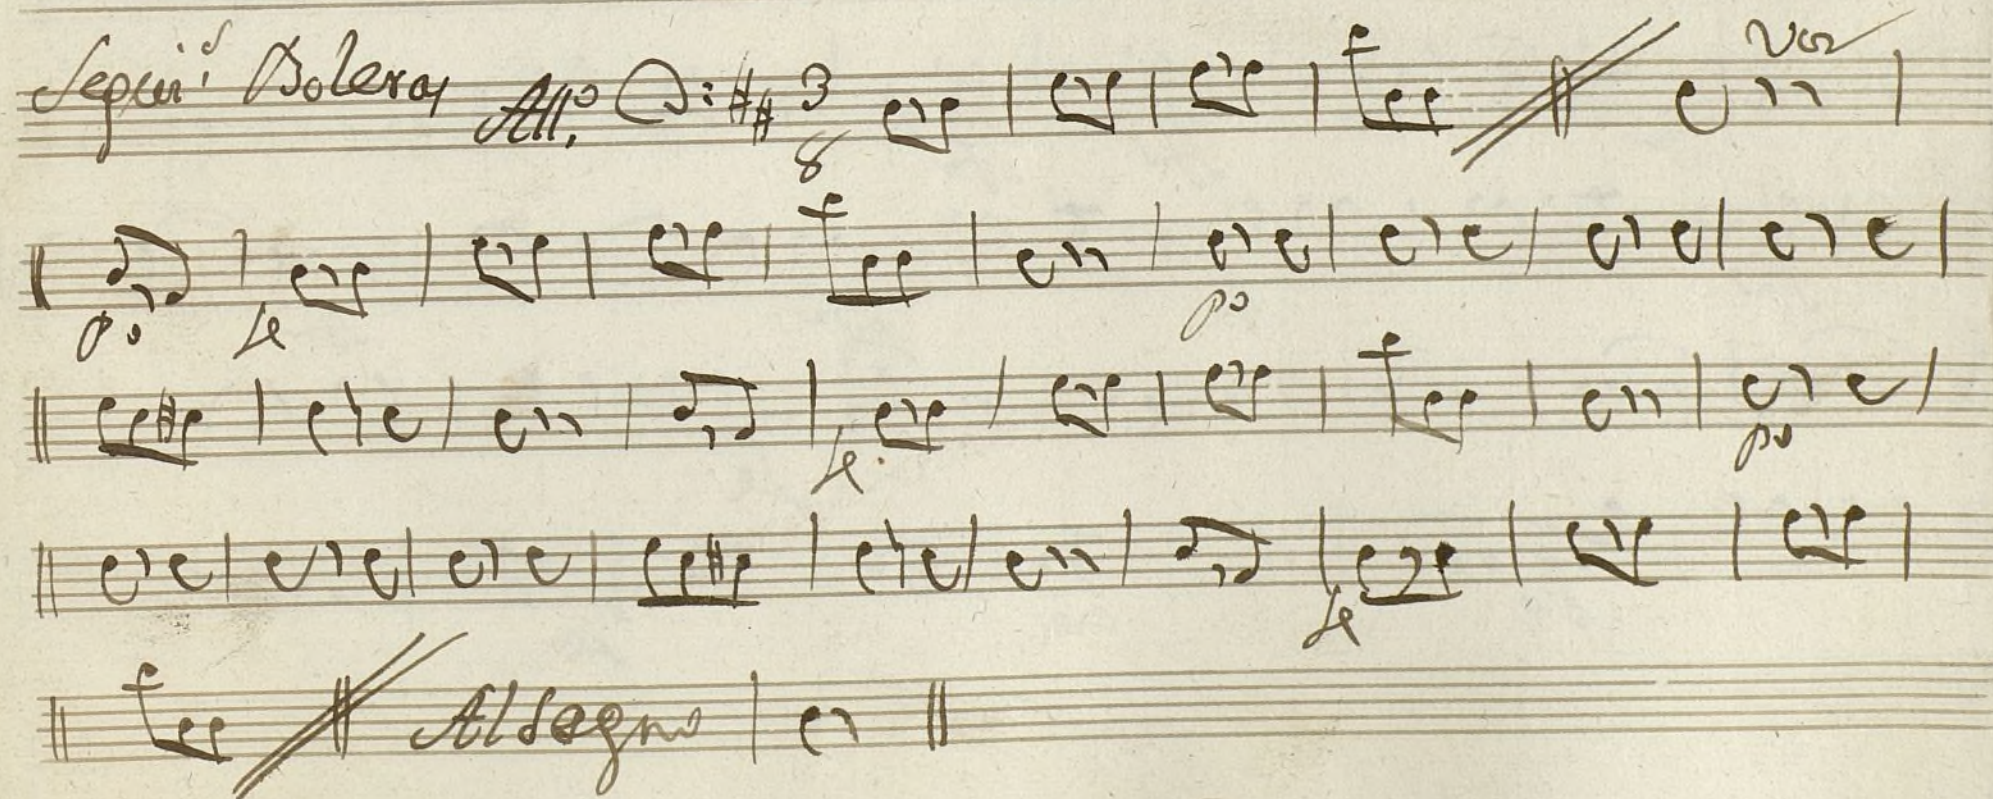 Segui.s Boleras All.o 3 8 voz
po fe po
fe po
fe
Al Segno